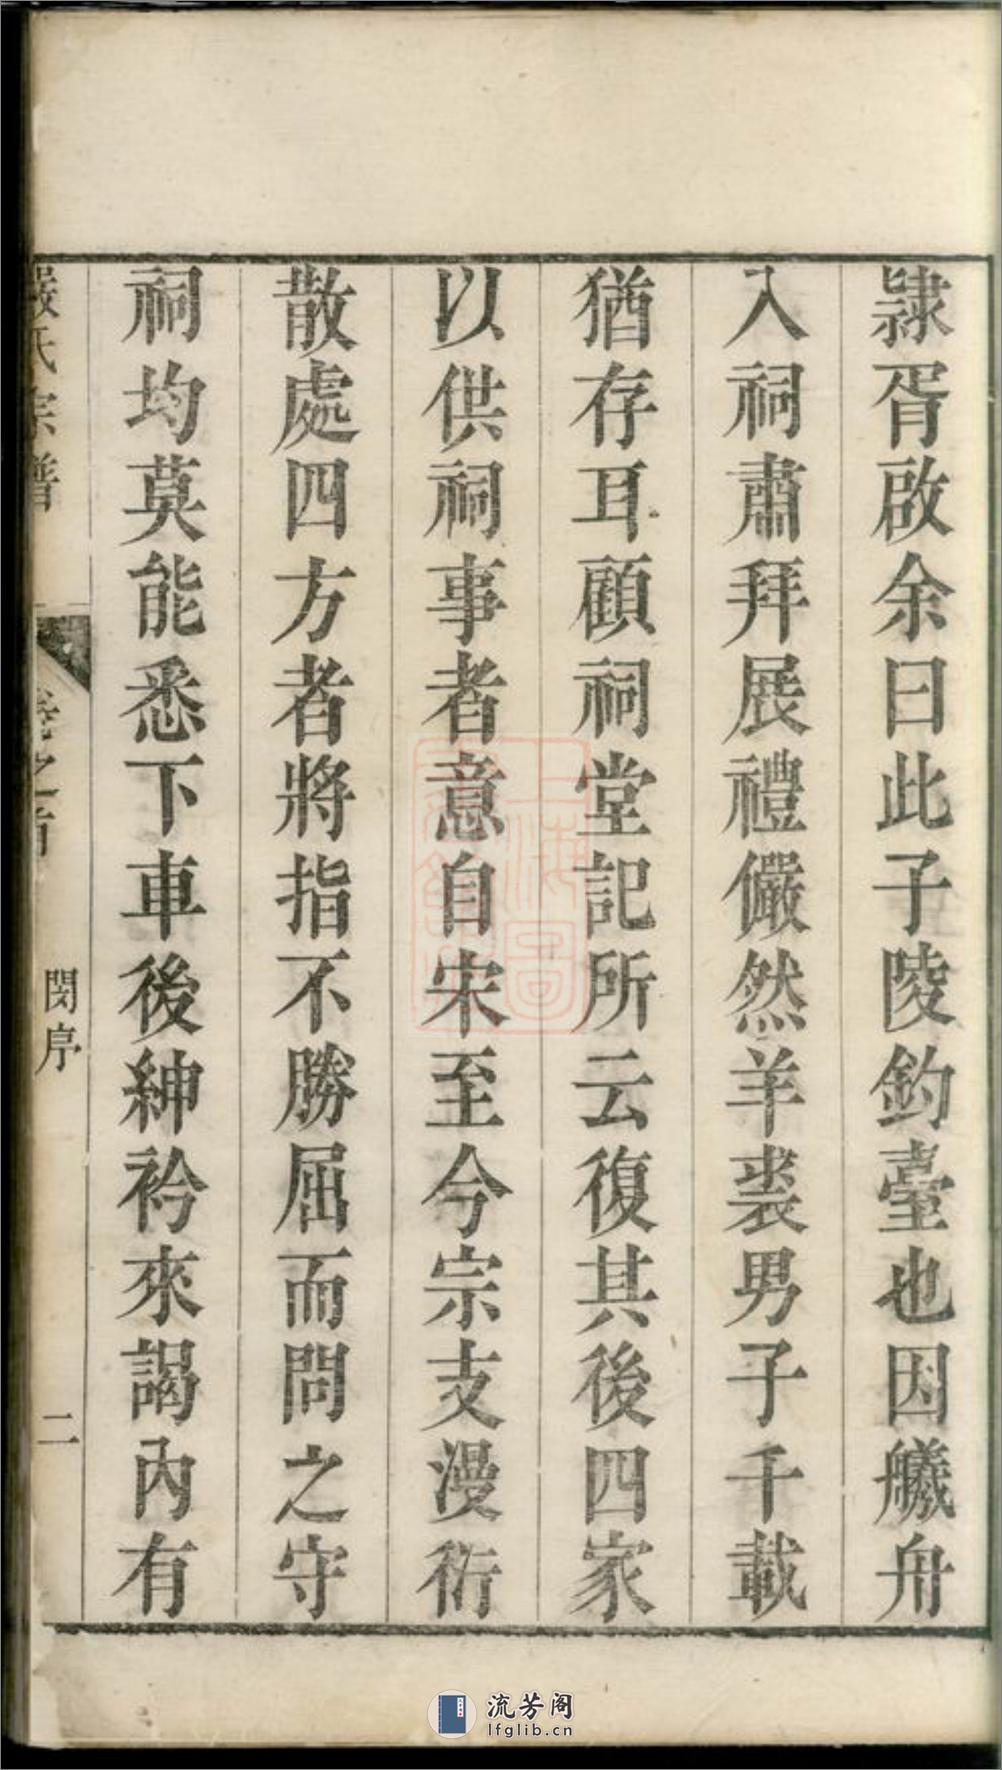 隸胥啟余曰此子陵釣臺也因艤舟
入祠肅拜展禮儼然羊裘男子千載
猶存耳顧祠堂記所云復其後四家
以供祠事者意自宋至今宗支漫衍
散處四方者將指不勝屈而問之守
祠均莫能悉下車後紳衿來謁內有
嚴氏宗譜
卷之首
閔序
二
上海圖
流芳阁
lfglib.cn